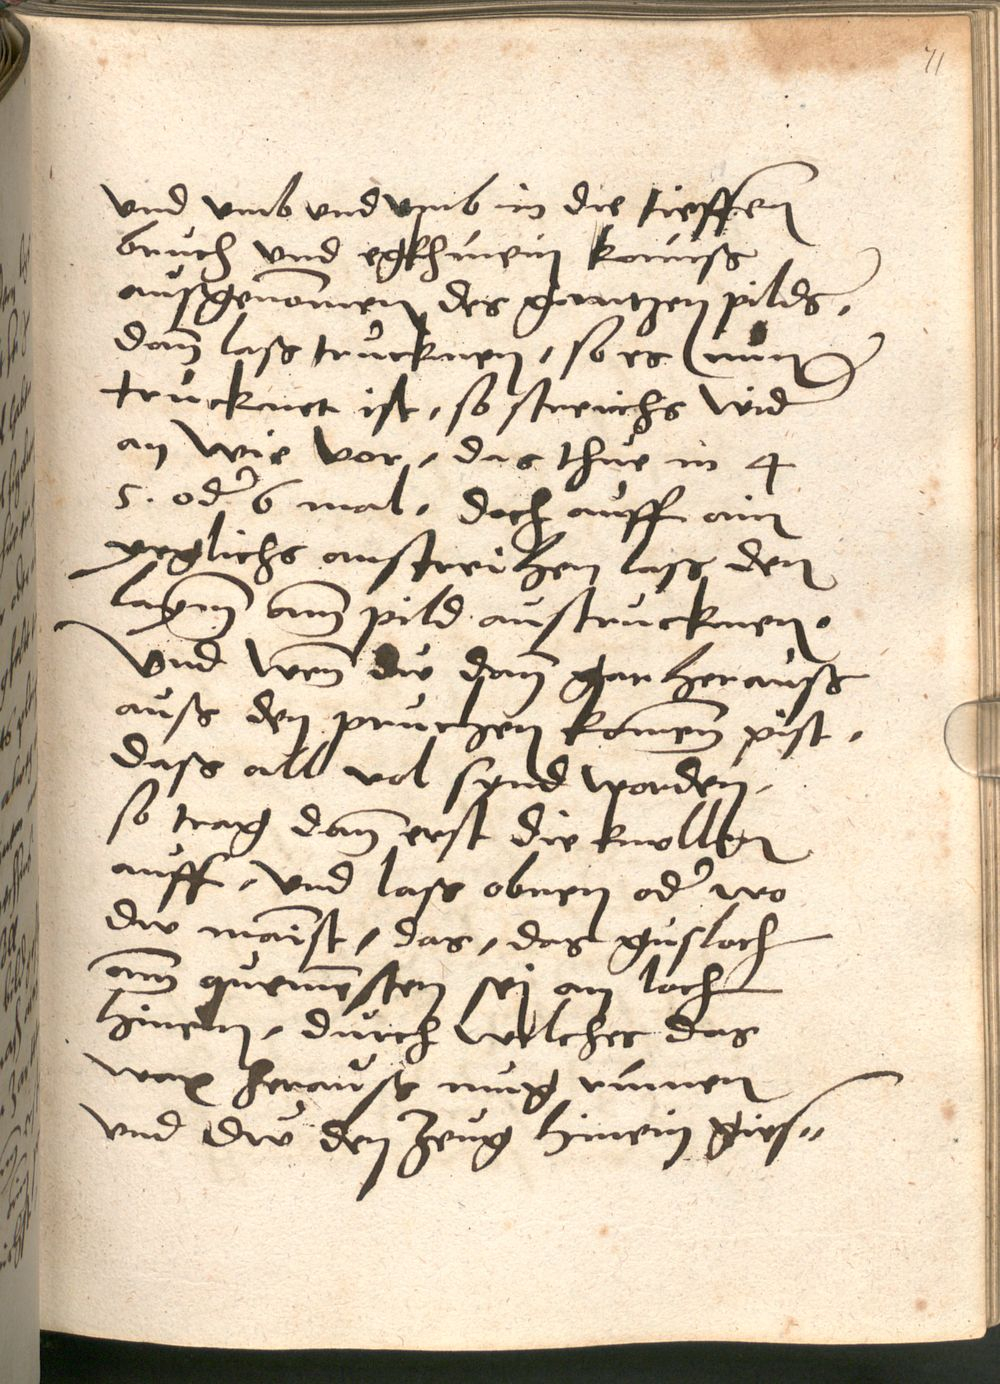 71
vnd vmb vnd vmb in die tieffen
bruch vnd egkh
ausgenomen des gantzen pilds,
dan lass trucknen, so es nun
trucknet ist, so streichs wid
an wie vor, das thue in 4
5. oder 6 mal, doch auff ain
yeglichs anstreichen lass den
laym am pild austrucknen.
Vnd wen du dan gar herauss
auss den pruchen komen pist,
dass all vol synd worden,
so trag dan erst die knollen
auff, vnd lass obnen oder wo
du mainst, das, das gusloch
am quemesten sej ain loch
hinein, durch welches das
wax herauss mug rinnen
vnd du den zeug hinein gies-